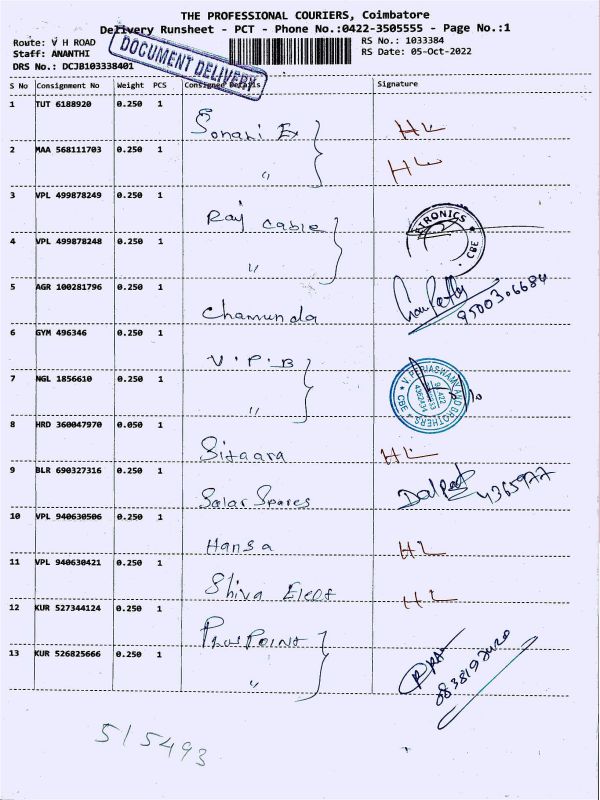 THE PROFESSIONAL COURIERS, Coimbatore
Delivery Runsheet - PCT - Phone No.:0422-3505555 - Page No.:1
Route: V H ROAD
RS No.: 1033384
Staff: ANANTHI
RS Date: 05-Oct-2022
DRS No.: DCJB103338401
DOCUMENT DELIVERY
S No Consignment No Weight PCS Consignee Details Signature
1 TUT 6188920 0.250 1
HL
2 MAA 568111703 0.250 1 "
HL
3 VPL 499878249 0.250 1
Raj Cable
TRONICS
CBE
4 VPL 499878248 0.250 1 "
5 AGR 100281796 0.250 1
Chamunda
9500306684
6 GYM 496346 0.250 1
V.P.B
7 NGL 1856610 0.250 1 "
V. PERIASWAMY AND BROTHERS
CBE
8 HRD 360047970 0.050 1
Sitaara HL
9 BLR 690327316 0.250 1
Salar Spares
4365977
10 VPL 940630506 0.250 1
Hansa HL
11 VPL 940630421 0.250 1
Shiva Elect HL
12 KUR 527344124 0.250 1
Point
13 KUR 526825666 0.250 1 "
515493